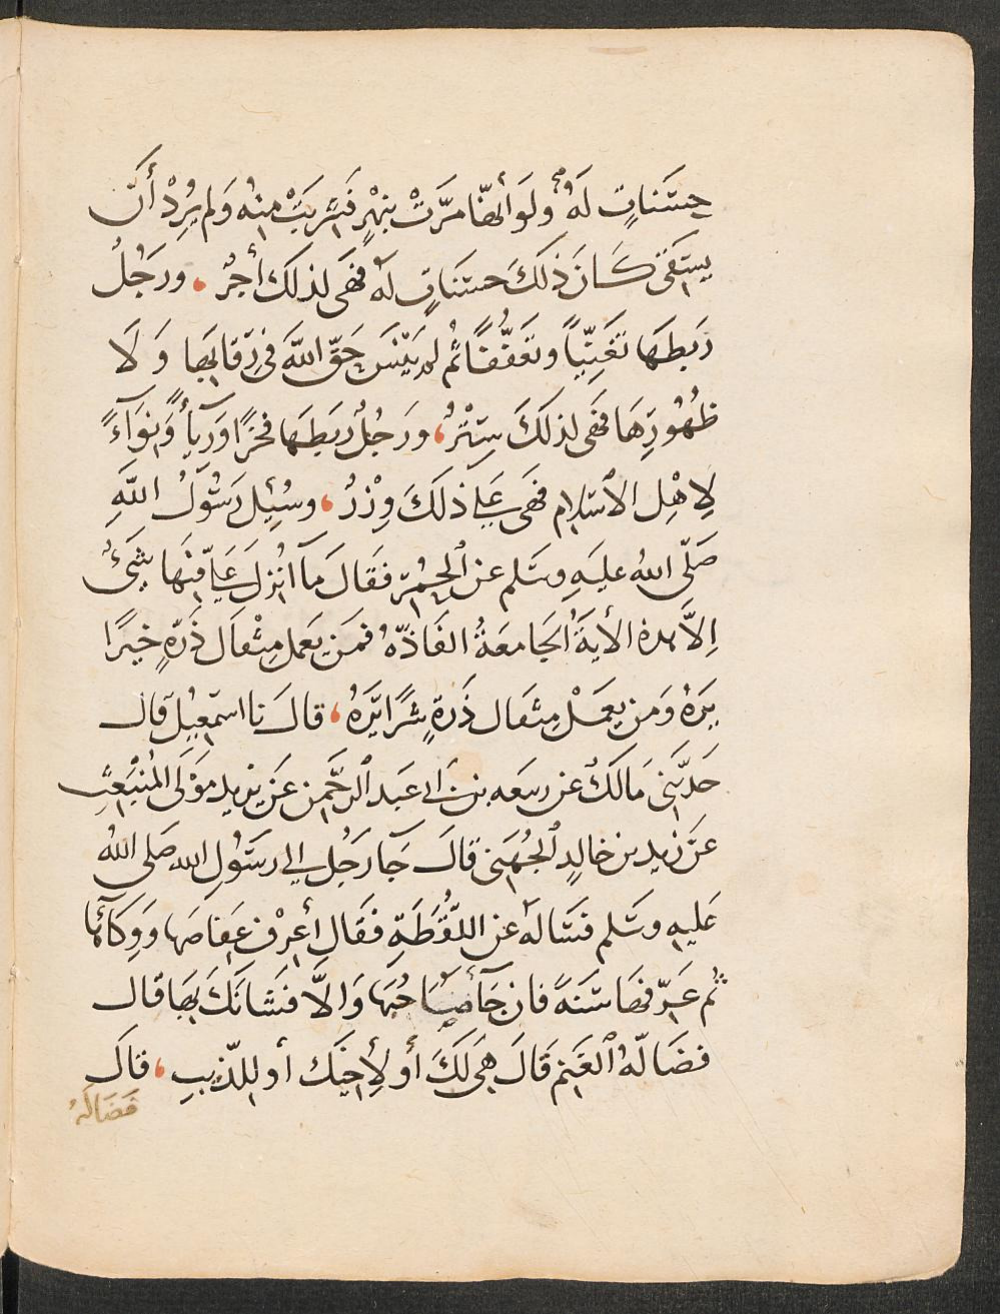 حسَنَاتٍ لَهُ ولَو أنهَّا مرَّتْ بنهْرٍ فَشرِبَتْ منهُ وَلم يرِدْ أنَّ
يستَقىَ كَانَ ذلكَ حسَنَاتٍ لهُ فهىَ لذلكَ أجْرٌ ، ورجُلٌ
رَبطهَا تغَنِّيًا وتعَفُّفًا ثُم لم يَنْسَ حَقّ اللهَ فى رِقَابِهَا وَلَا
ظُهُورِهَا فهَى لذلكَ سِتْرٌ ، ورَجُلٌ ربَطهَا فخرًا ورِيَاءً وَّنِوَآءً
لِاهْلِ الاسْلام فهىَ عَلى ذلكَ وِزْرٌ ، وسُئِلَ رَسُولُ اللهِ
صَلّى اللهُ عليهِ وسَلم عن الحُمُرِ فقَالَ مَا انُزلَ عَلَىّ فيهَا شىءٌ
اِلاَّ هذه الأيةَُ الجَامعَةُ الفَاذّهُ فمَن يَعمل مِثْقَال ذَرّةٍ خيرًا
يرَهُ وَمَن يعمَلْ مِثقَال ذَرةٍ شرًّا يّرَهُ ، قالَ نا اسمٰعِيلُ قالَ
حَدثَّنى مَالكٌ عن ربيعه بن أبى عَبد الرحَّمن عَن يزيد مَوْلَى المُنْبَعِثِ
عَن زيد بن خالدٍ الجُهَنى قالَ جَآ رجُل الى رسَوُلِ الله صَلى اللهُ
عَليهِ وسَلم فسَالهُ عن اللُّقَطَةِ فقَال أعرِْف عِفاصَهَا وَوِكَآئَهَا
ثُم عَرِّفهَا سَنَةً فان جَآءَ صَاحُبهَا وَالاَّ فشَانَكَ بهَا قال
فضَالّهُ الغنَم قَالَ هِىَ لَكَ أو لِأخيكَ أو لِلذّيبِ ، قالَ
فَضَالّهُ